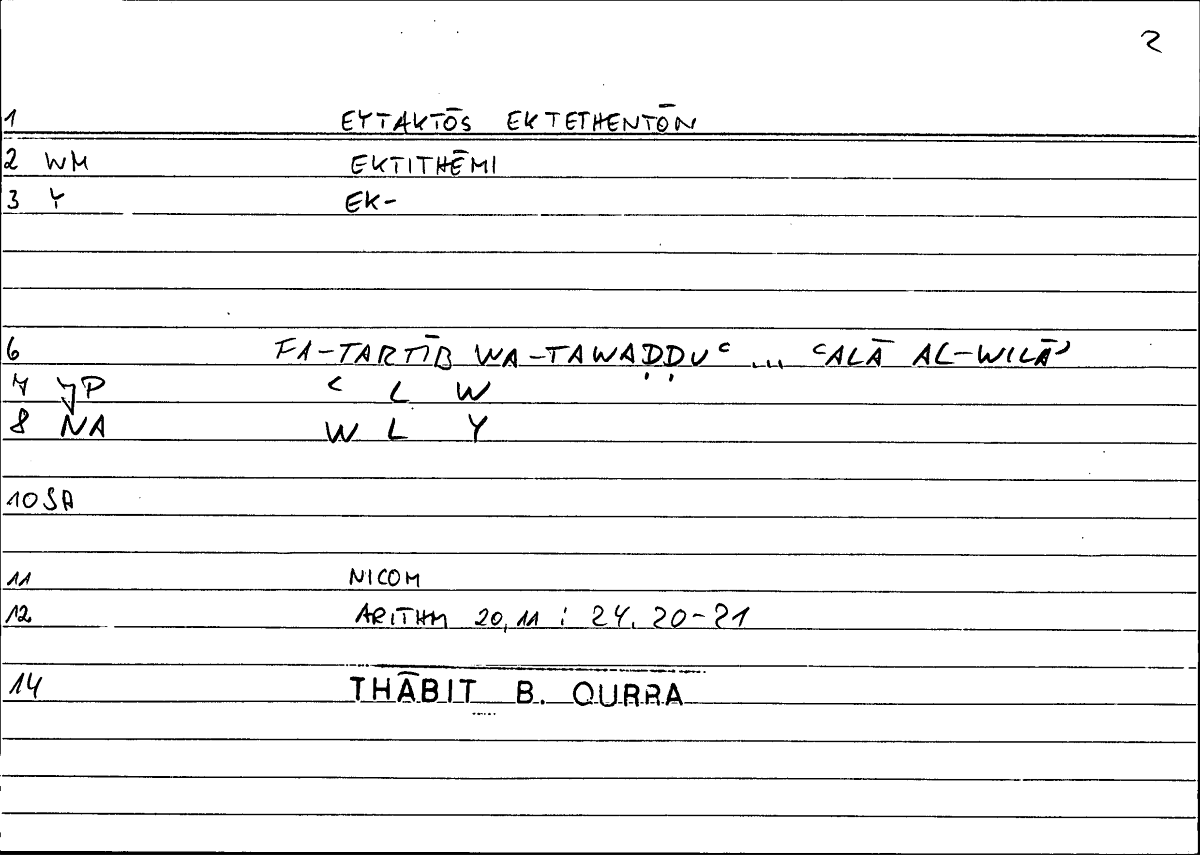 2
1 EYTAKTŌS EKTETHENTŌN
2 WM EKTITHĒMI
3 Y EK-
6 FA-TARTĪB WA-TAWAḌḌUʿ ... ʿALĀ AL-WILĀʾ
7 JP ʿ L W
8 NA W L Y
10 SA
11 NICOM
12 ARITHM 20,11 : 24. 20-21
14 THĀBIT B. QURRA